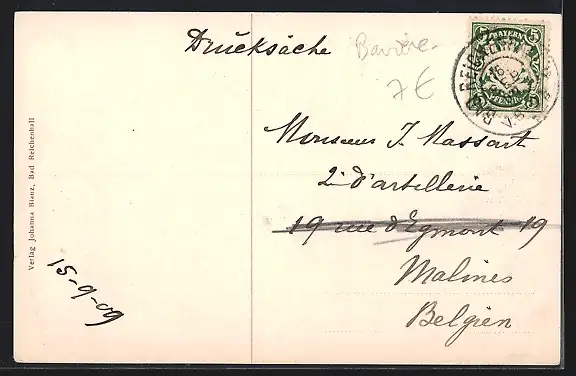 Drucksache
Bavière
7 €
5 BAYERN 5
PFENNIG
BAD REICHENHALL
Monsieur J. Massart
2e d'artellerie
19 rue d'Egmont 19
Malines
Belgien
Verlag Johanna Blanz, Bad Reichenhall
15-6-09